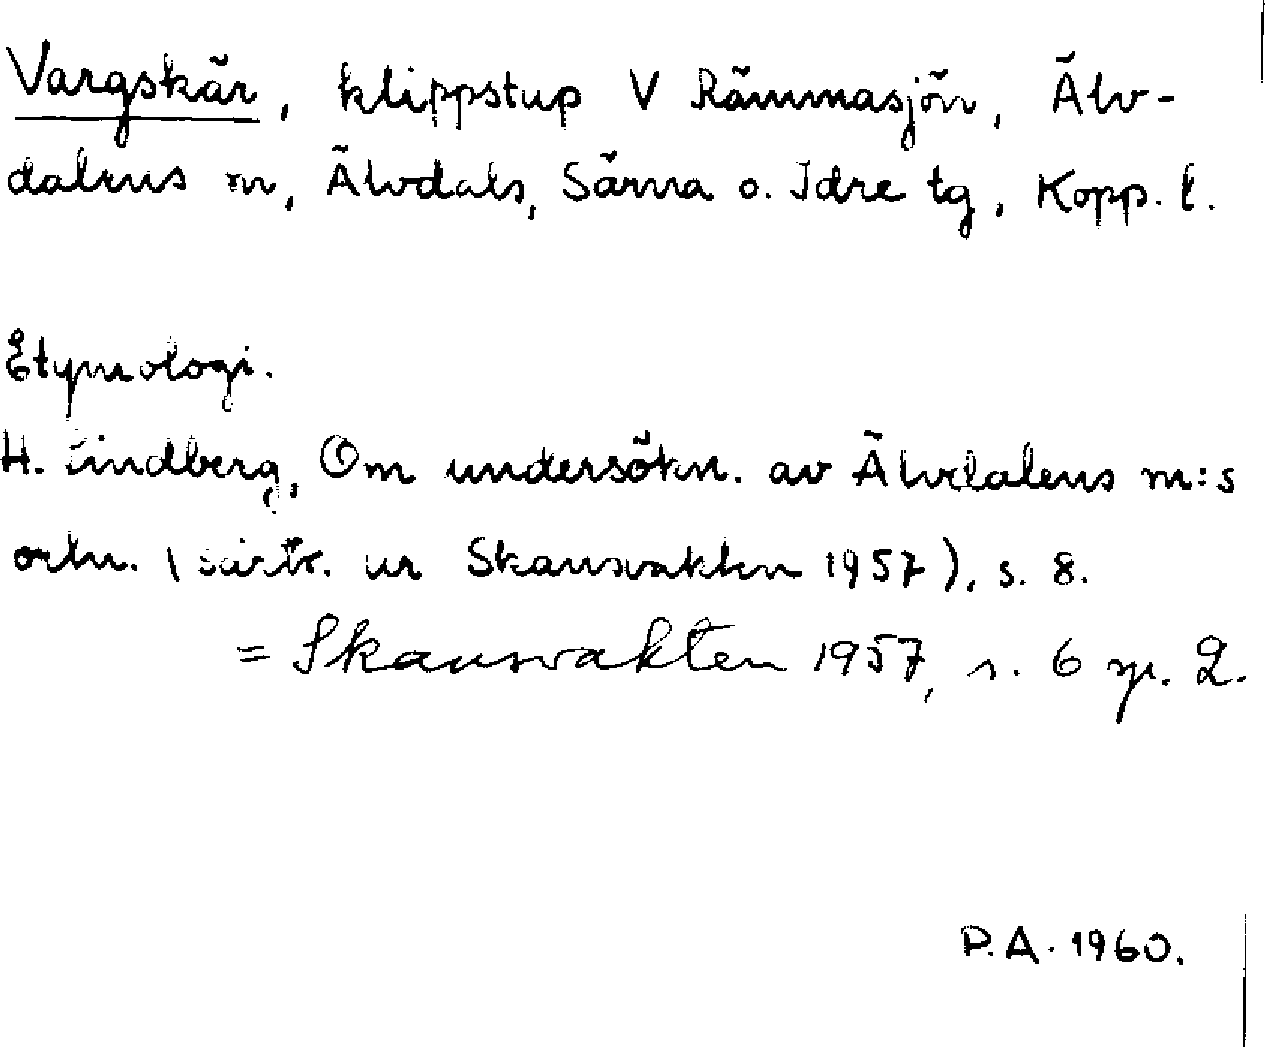 Vargskär, klippstup V Rämmasjön, Älv-
dalens m, Älvdals, Särna o. Idre tg, Kopp. l.
Etymologi.
H. Lindberg, Om undersökn. av Älvdalens m:s
ortn. (särtr. ur Skansvakten 1957), s. 8.
= Skansvakten 1957, s. 6 sp. 2.
P.A. 1960.